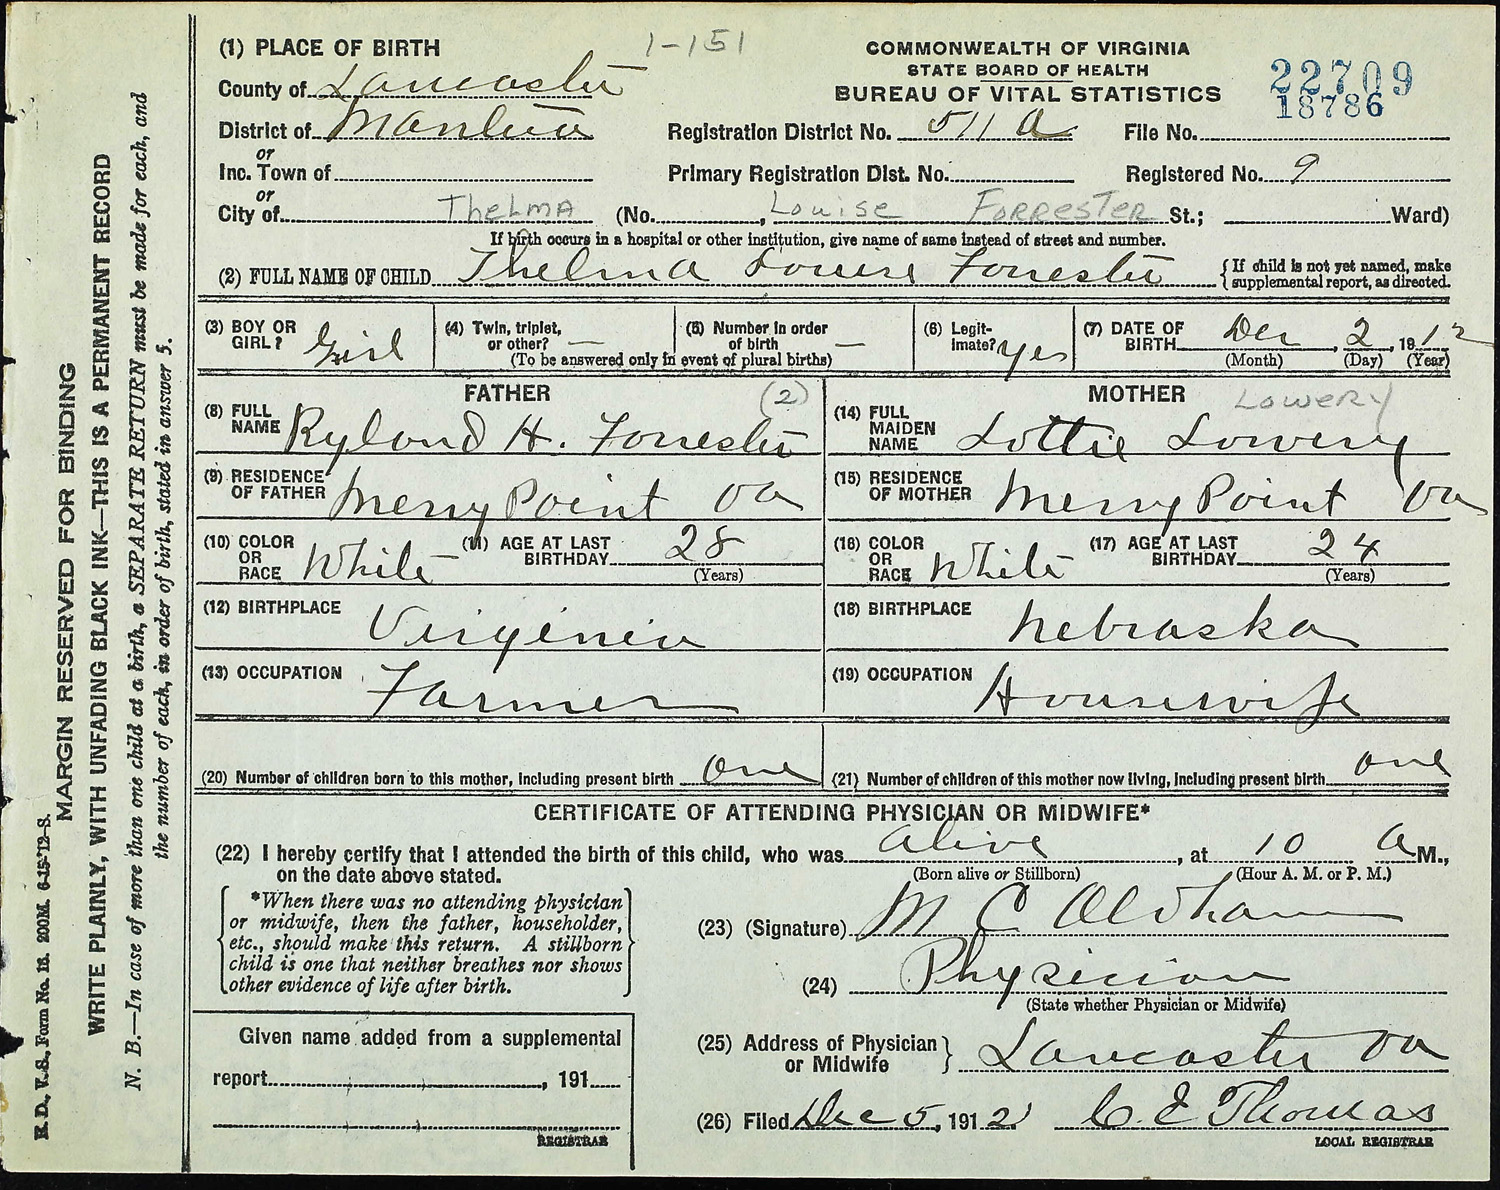 (1) PLACE OF BIRTH 1-151
County of Lancaster
District of Mantua
or
Inc. Town of
or
City of Thelma (No. , Louise Forrester St.; Ward)
If birth occurs in a hospital or other institution, give name of same instead of street and number.
COMMONWEALTH OF VIRGINIA
STATE BOARD OF HEALTH
BUREAU OF VITAL STATISTICS
22709
18786
Registration District No. 511 a File No.
Primary Registration Dist. No. Registered No. 9
(2) FULL NAME OF CHILD Thelma Louise Forrester { If child is not yet named, make
supplemental report, as directed.
(3) BOY OR GIRL? Girl
(4) Twin, triplet, or other? —
(5) Number in order of birth —
(To be answered only in event of plural births)
(6) Legitimate? yes
(7) DATE OF BIRTH Dec , 2 , 1912
(Month) (Day) (Year)
FATHER (2)
(8) FULL NAME Ryland H. Forrester
(9) RESIDENCE OF FATHER Merry Point Va
(10) COLOR OR RACE White (11) AGE AT LAST BIRTHDAY 28
(Years)
(12) BIRTHPLACE Virginia
(13) OCCUPATION Farmer
MOTHER Lowery
(14) FULL MAIDEN NAME Lottie Lowery
(15) RESIDENCE OF MOTHER Merry Point Va
(16) COLOR OR RACE White (17) AGE AT LAST BIRTHDAY 24
(Years)
(18) BIRTHPLACE Nebraska
(19) OCCUPATION Housewife
(20) Number of children born to this mother, including present birth one
(21) Number of children of this mother now living, including present birth one
CERTIFICATE OF ATTENDING PHYSICIAN OR MIDWIFE*
(22) I hereby certify that I attended the birth of this child, who was alive , at 10 a M.,
(Born alive or Stillborn) (Hour A. M. or P. M.)
on the date above stated.
*When there was no attending physician
or midwife, then the father, householder,
etc., should make this return. A stillborn
child is one that neither breathes nor shows
other evidence of life after birth.
(23) (Signature) M C Oldham
(24) Physician
(State whether Physician or Midwife)
(25) Address of Physician or Midwife } Lancaster Va
(26) Filed Dec 5, 1912 C. E Thomas
LOCAL REGISTRAR
Given name added from a supplemental
report , 191
REGISTRAR
MARGIN RESERVED FOR BINDING
WRITE PLAINLY, WITH UNFADING BLACK INK—THIS IS A PERMANENT RECORD
N. B.—In case of more than one child at a birth, a SEPARATE RETURN must be made for each, and
the number of each, in order of birth, stated in answer 5.
V. S., Form No. 18. 200M. 6-15-'12-S.